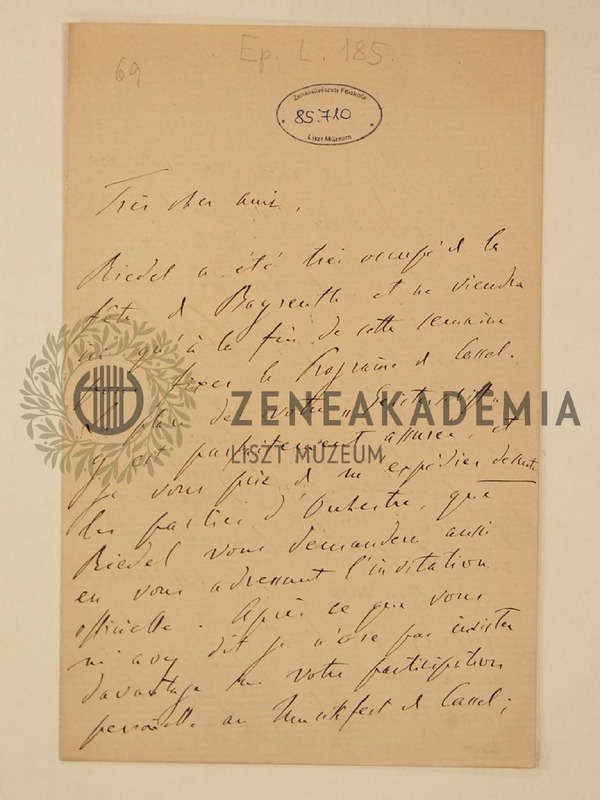 69
Ep. L. 185.
Zeneművészeti Főiskola
85.710
Liszt Múzeum
Très cher ami,
Riedel a été très occupé de la
fête de Bayreuth et ne viendra
ici qu'à la fin de cette semaine
fixer le Programme de Cassel.
de votre
y est parfaitement assurée, et
je vous prie de m'expédier de suite
les parties d'Orchestre, que
Riedel vous demandera aussi
en vous adressant l'invitation
officielle. Après ce que vous
m'avez dit je n'ose pas insister
davantage sur votre participation
personelle au Musikfest de Cassel;
ZENEAKADÉMIA
LISZT MÚZEUM